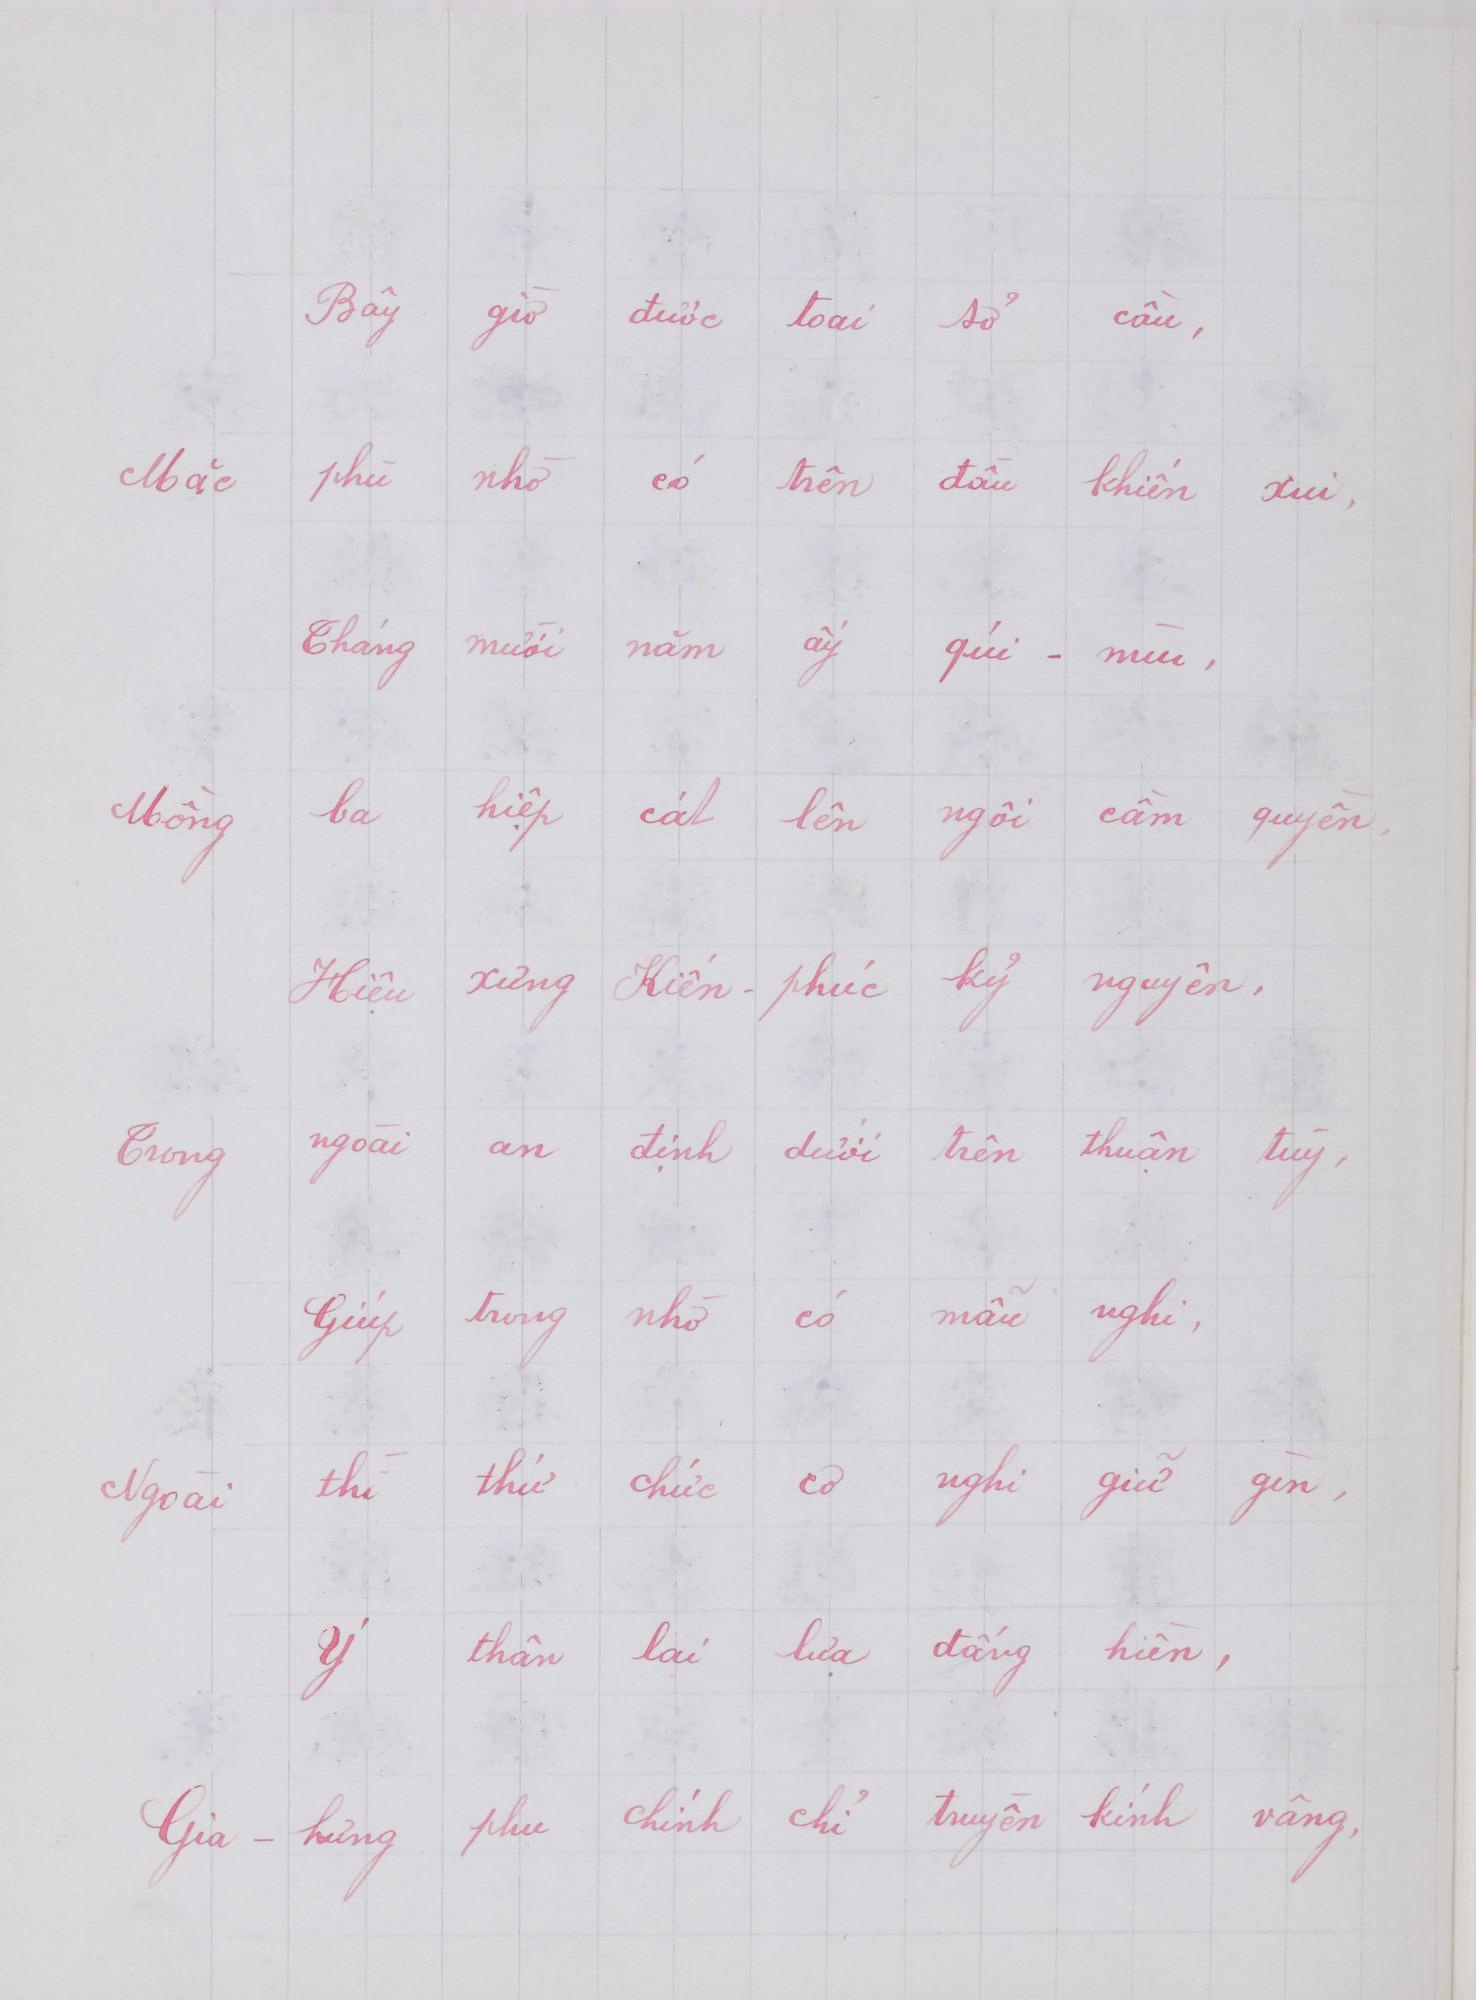 Bây giờ được toại sở cầu,
Mặc phù nhờ có trên đầu khiến xui,
Tháng mười năm ấy qúi - mùi,
Mồng ba hiệp cát lên ngôi cầm quyền,
Hiệu xưng Kiến - phúc kỷ nguyên,
Trong ngoài an định dưới trên thuận tùy,
Giúp trong nhờ có mẫu nghi,
Ngoài thì thứ chức cơ nghi giữ gìn,
Ý thân lại lựa đấng hiền,
Gia - hưng phụ chính chỉ truyền kính vâng,